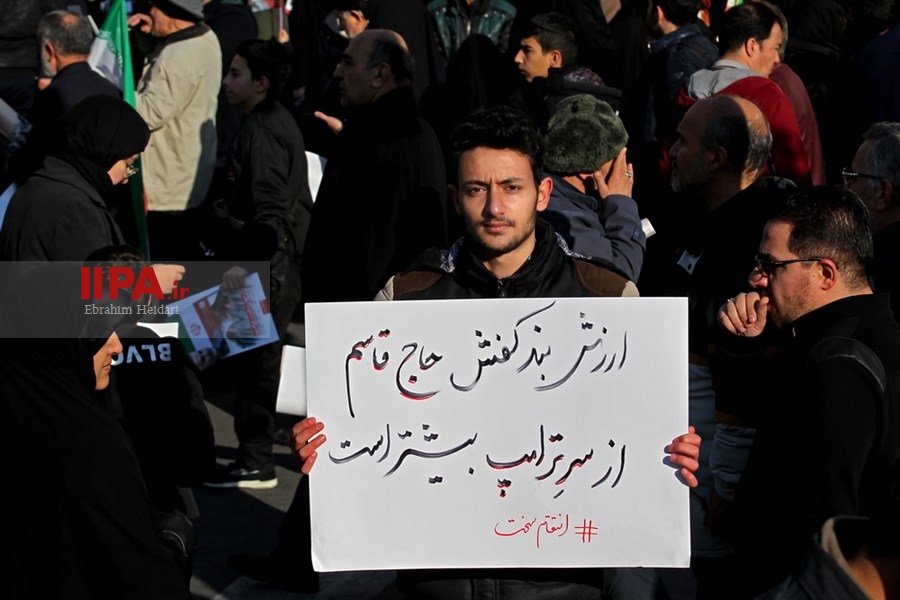 IIPA.ir
Ebrahim Heidari
BLVO
ارزش بند کفش حاج قاسم
از سرِ ترامپ بیشتر است
#انتقام_سخت